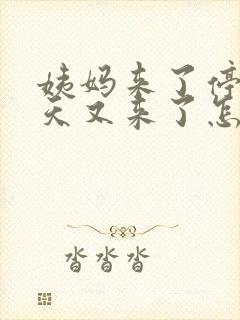 姨妈来了停
天又来了怎
沓沓沓